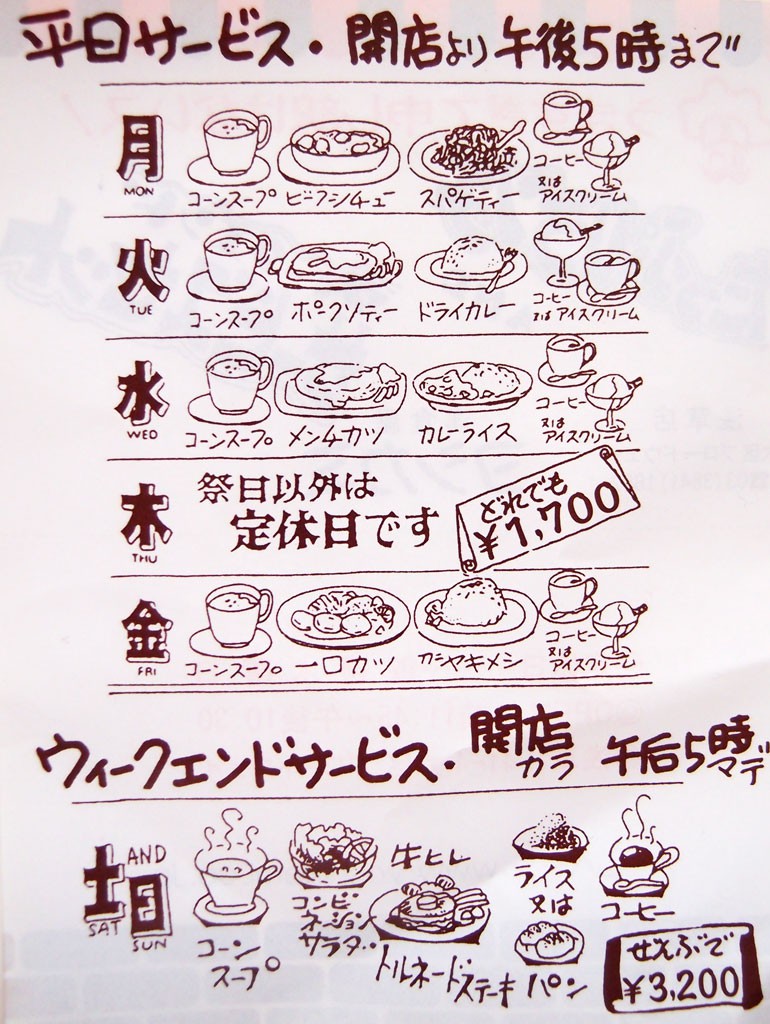 平日サービス・開店より午後5時まで
月 MON コーンスープ ビーフシチュー スパゲティー コーヒー 又は アイスクリーム
火 TUE コーンスープ ポークソティー ドライカレー コーヒー 又は アイスクリーム
水 WED コーンスープ メンチカツ カレーライス コーヒー 又は アイスクリーム
木 THU 祭日以外は
定休日です
どれでも
¥1,700
金 FRI コーンスープ 一口カツ カニヤキメシ コーヒー 又は アイスクリーム
ウィークエンドサービス・開店カラ 午后5時マデ
土 AND 日
SAT SUN
コーン
スープ
コンビ
ネーション
サラダ
牛ヒレ
トルネードステーキ
ライス
又は
パン
コーヒー
ぜんぶで
¥3,200